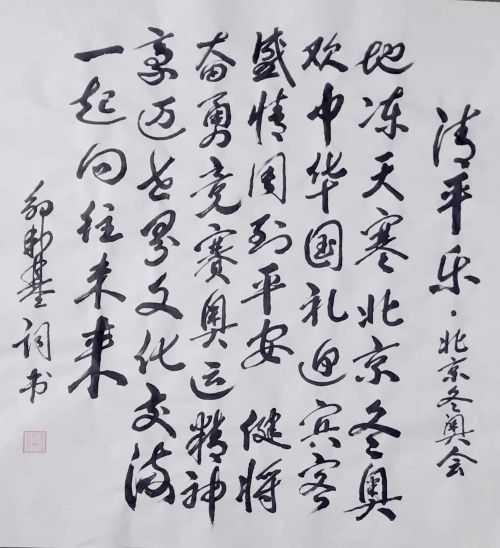 清平乐·北京冬奥会
地冻天寒北京冬奥
欢中华国礼迎宾客
盛情周到平安 健将
奋勇竞赛奥运精神
豪迈世界文化交流
一起向往未来
基词书